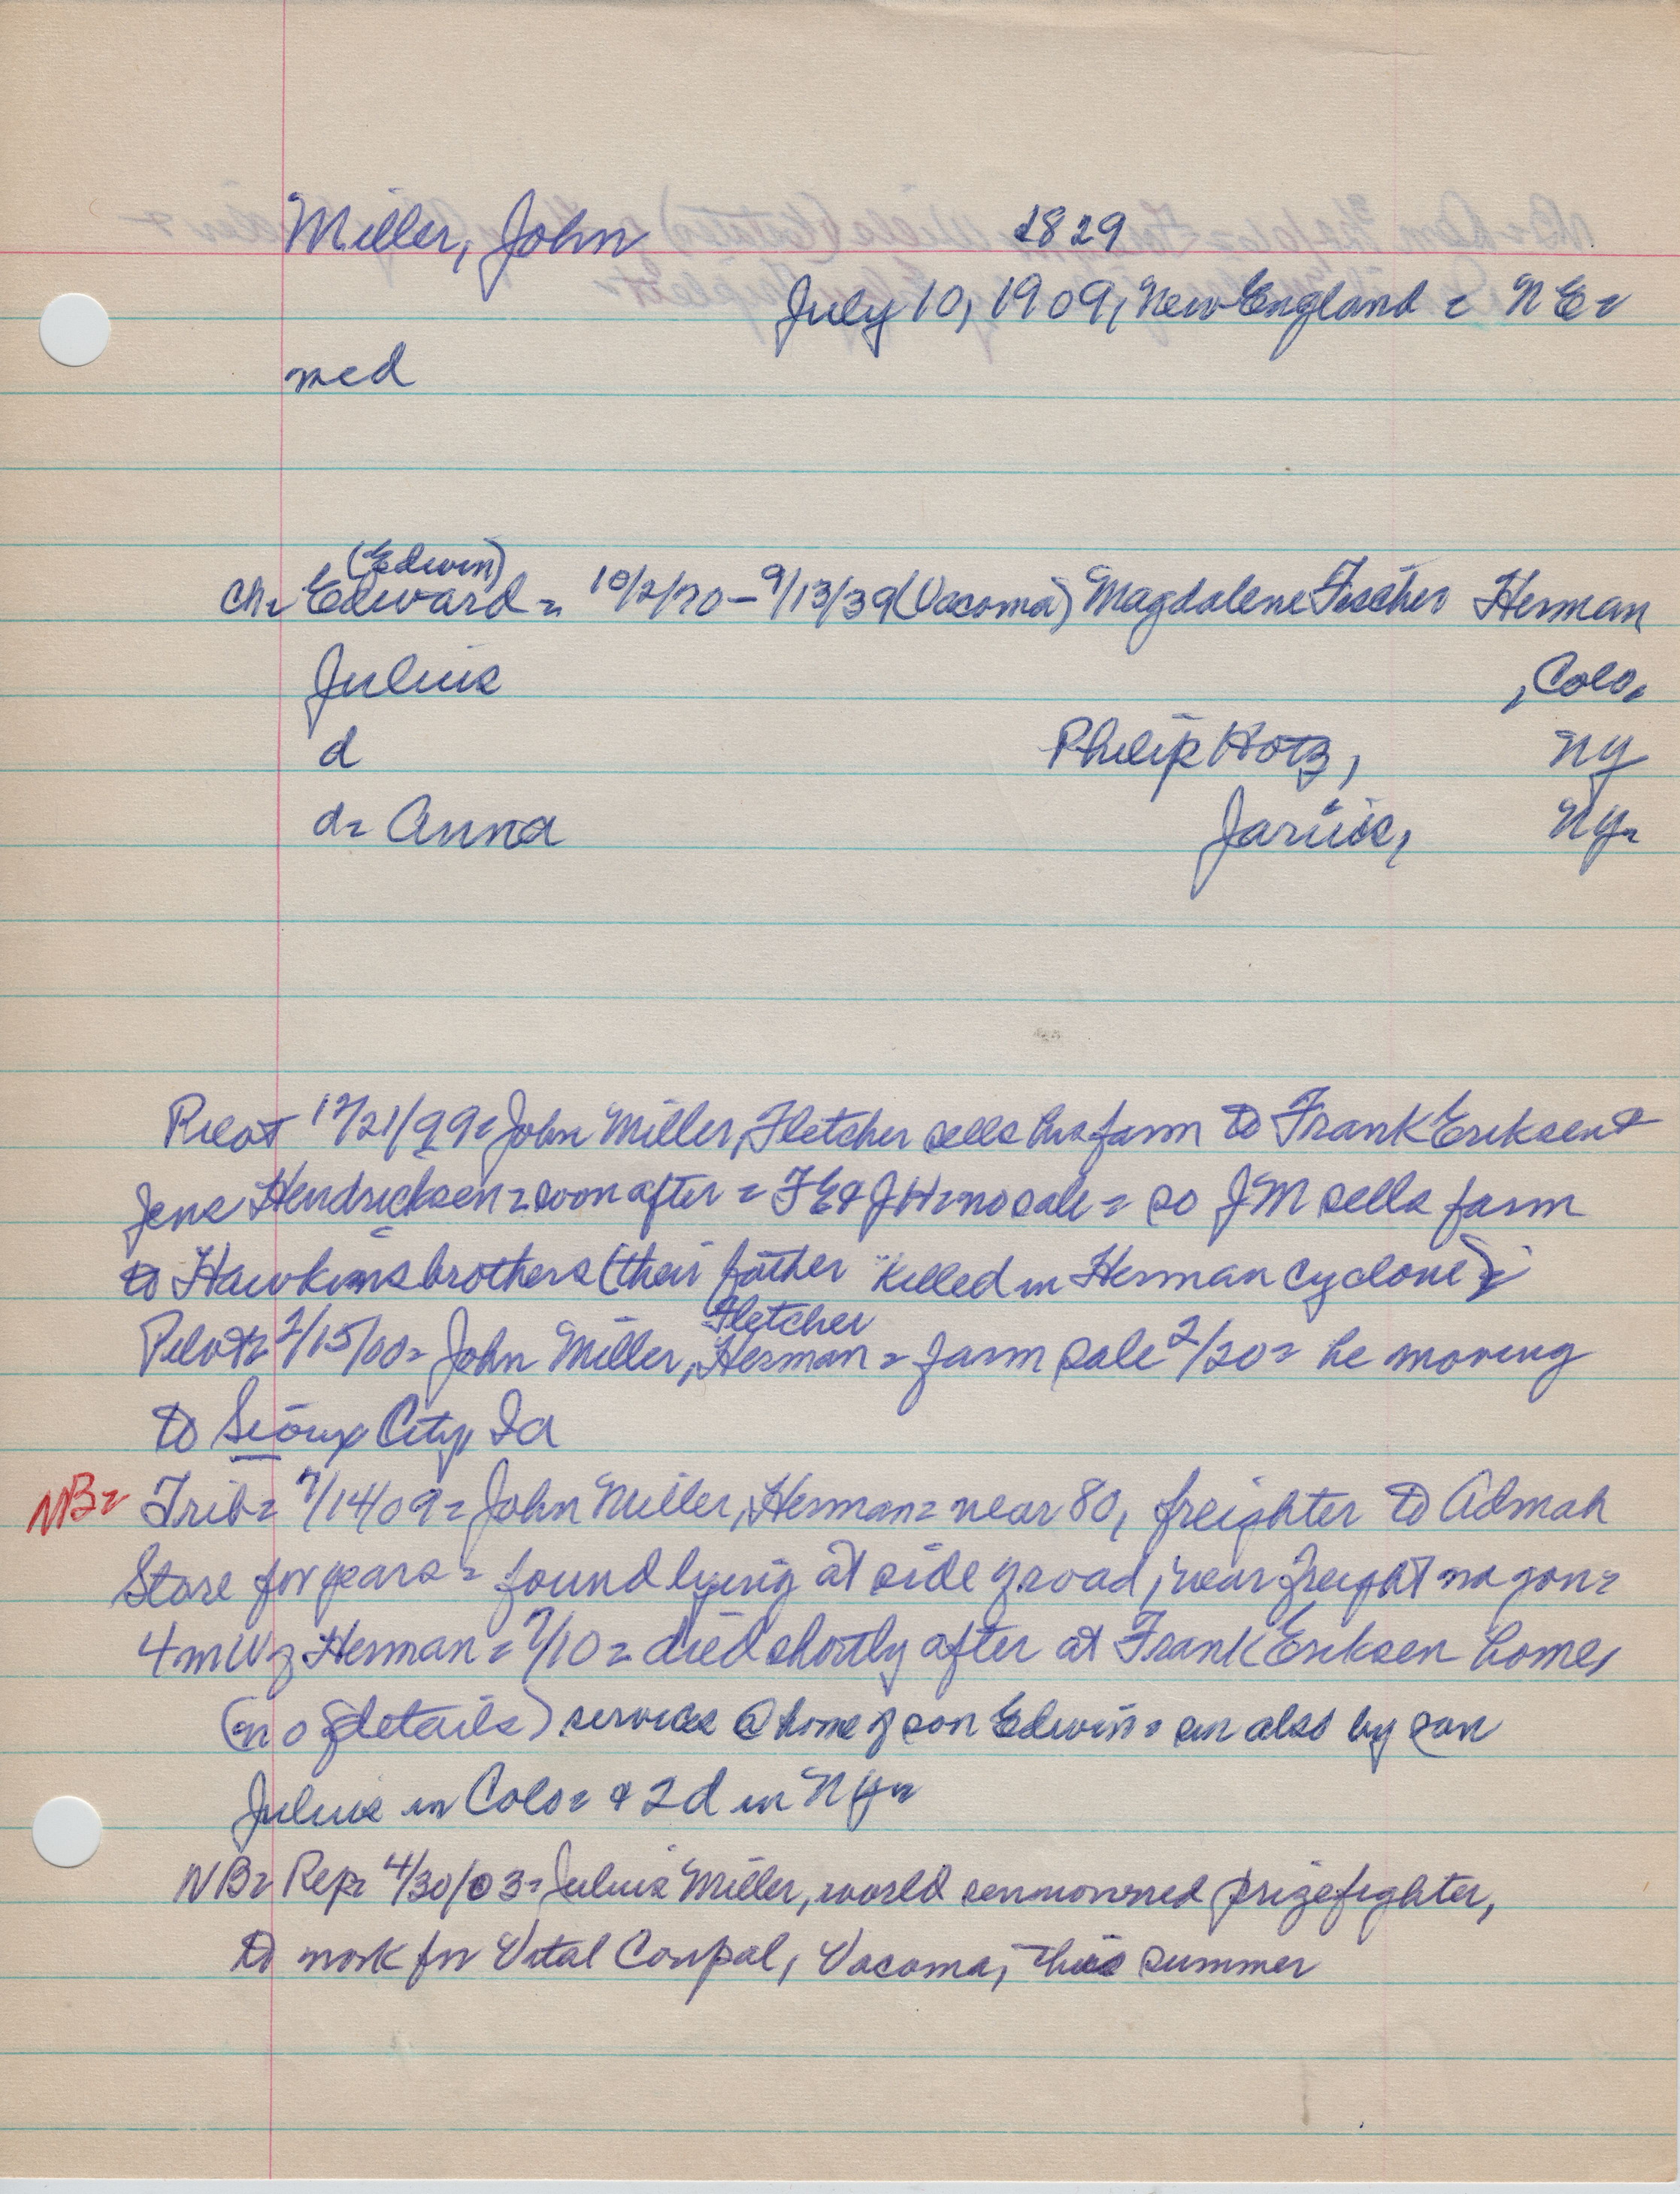 Miller, John 1829
July 10, 1909, New England = NE=
med
(Edwin)
ch= Edward = 10/2/70 - 9/13/39 (Vacoma) Magdalene Fischer Herman
Julius , Colo.
d Philip Hotz, NY
d= Anna Jarvis, NY=
Pilot 12/21/99= John Miller, Fletcher sells his farm to Frank Eriksen &
Jens Hendricksen = soon after = FE & JH = no sale = so JM sells farm
to Hawkins brothers (their father killed in Herman cyclone)=
Fletcher
Pilot= 2/15/00= John Miller, Herman = farm sale 2/20= he moving
to Sioux City, Ia
NB= Trib= 7/14/09= John Miller, Herman= near 80, freighter to Admah
Store for years = found lying at side of road, near freight wagon=
4mW of Herman = 7/10 = died shortly after at Frank Eriksen home,
(no details) services @ home of son Edwin = sur also by son
Julius in Colo= & 2d in NY=
NB= Rep= 4/30/03= Julius Miller, world renmowned prizefighter,
to work for Vital Coupal, Vacoma, this summer